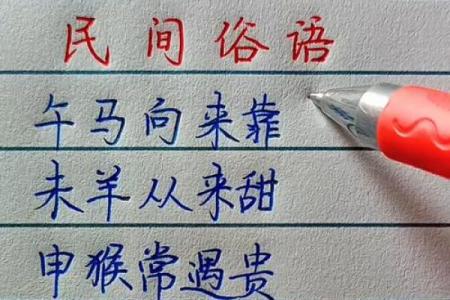 民间俗语
午马向来靠
未羊从来甜
申猴常遇贵